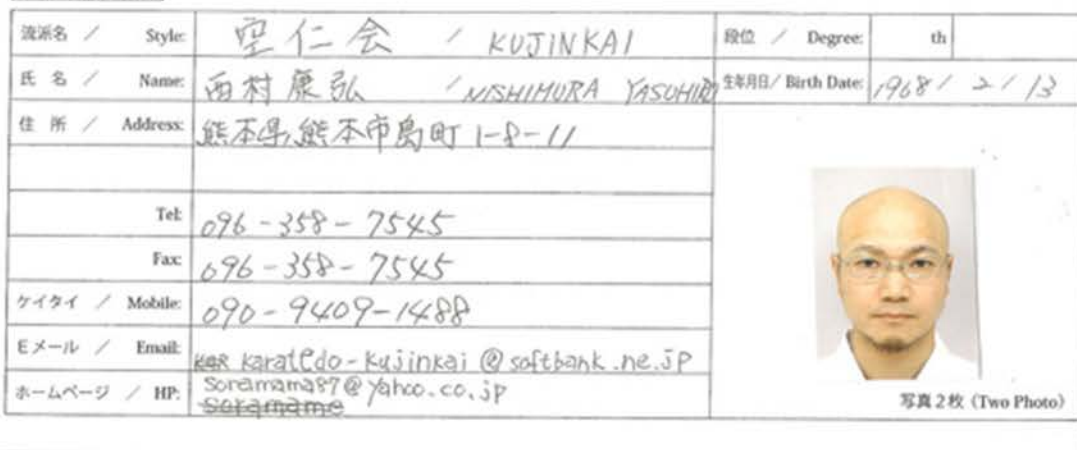 流派名 / Style: 空仁会 / KUJINKAI 段位 / Degree: th
氏名 / Name: 西村康弘 / NISHIMURA YASUHIRO 生年月日/ Birth Date: 1968 / 2 / 13
住所 / Address: 熊本県熊本市島町 1-8-11
Tel: 096-358-7545
Fax: 096-358-7545
ケイタイ / Mobile: 090-9409-1488
Eメール / Email: karatedo-kujinkai@softbank.ne.jp
ホームページ / HP: Soramama87@yahoo.co.jp
Soramame
写真2枚 (Two Photo)